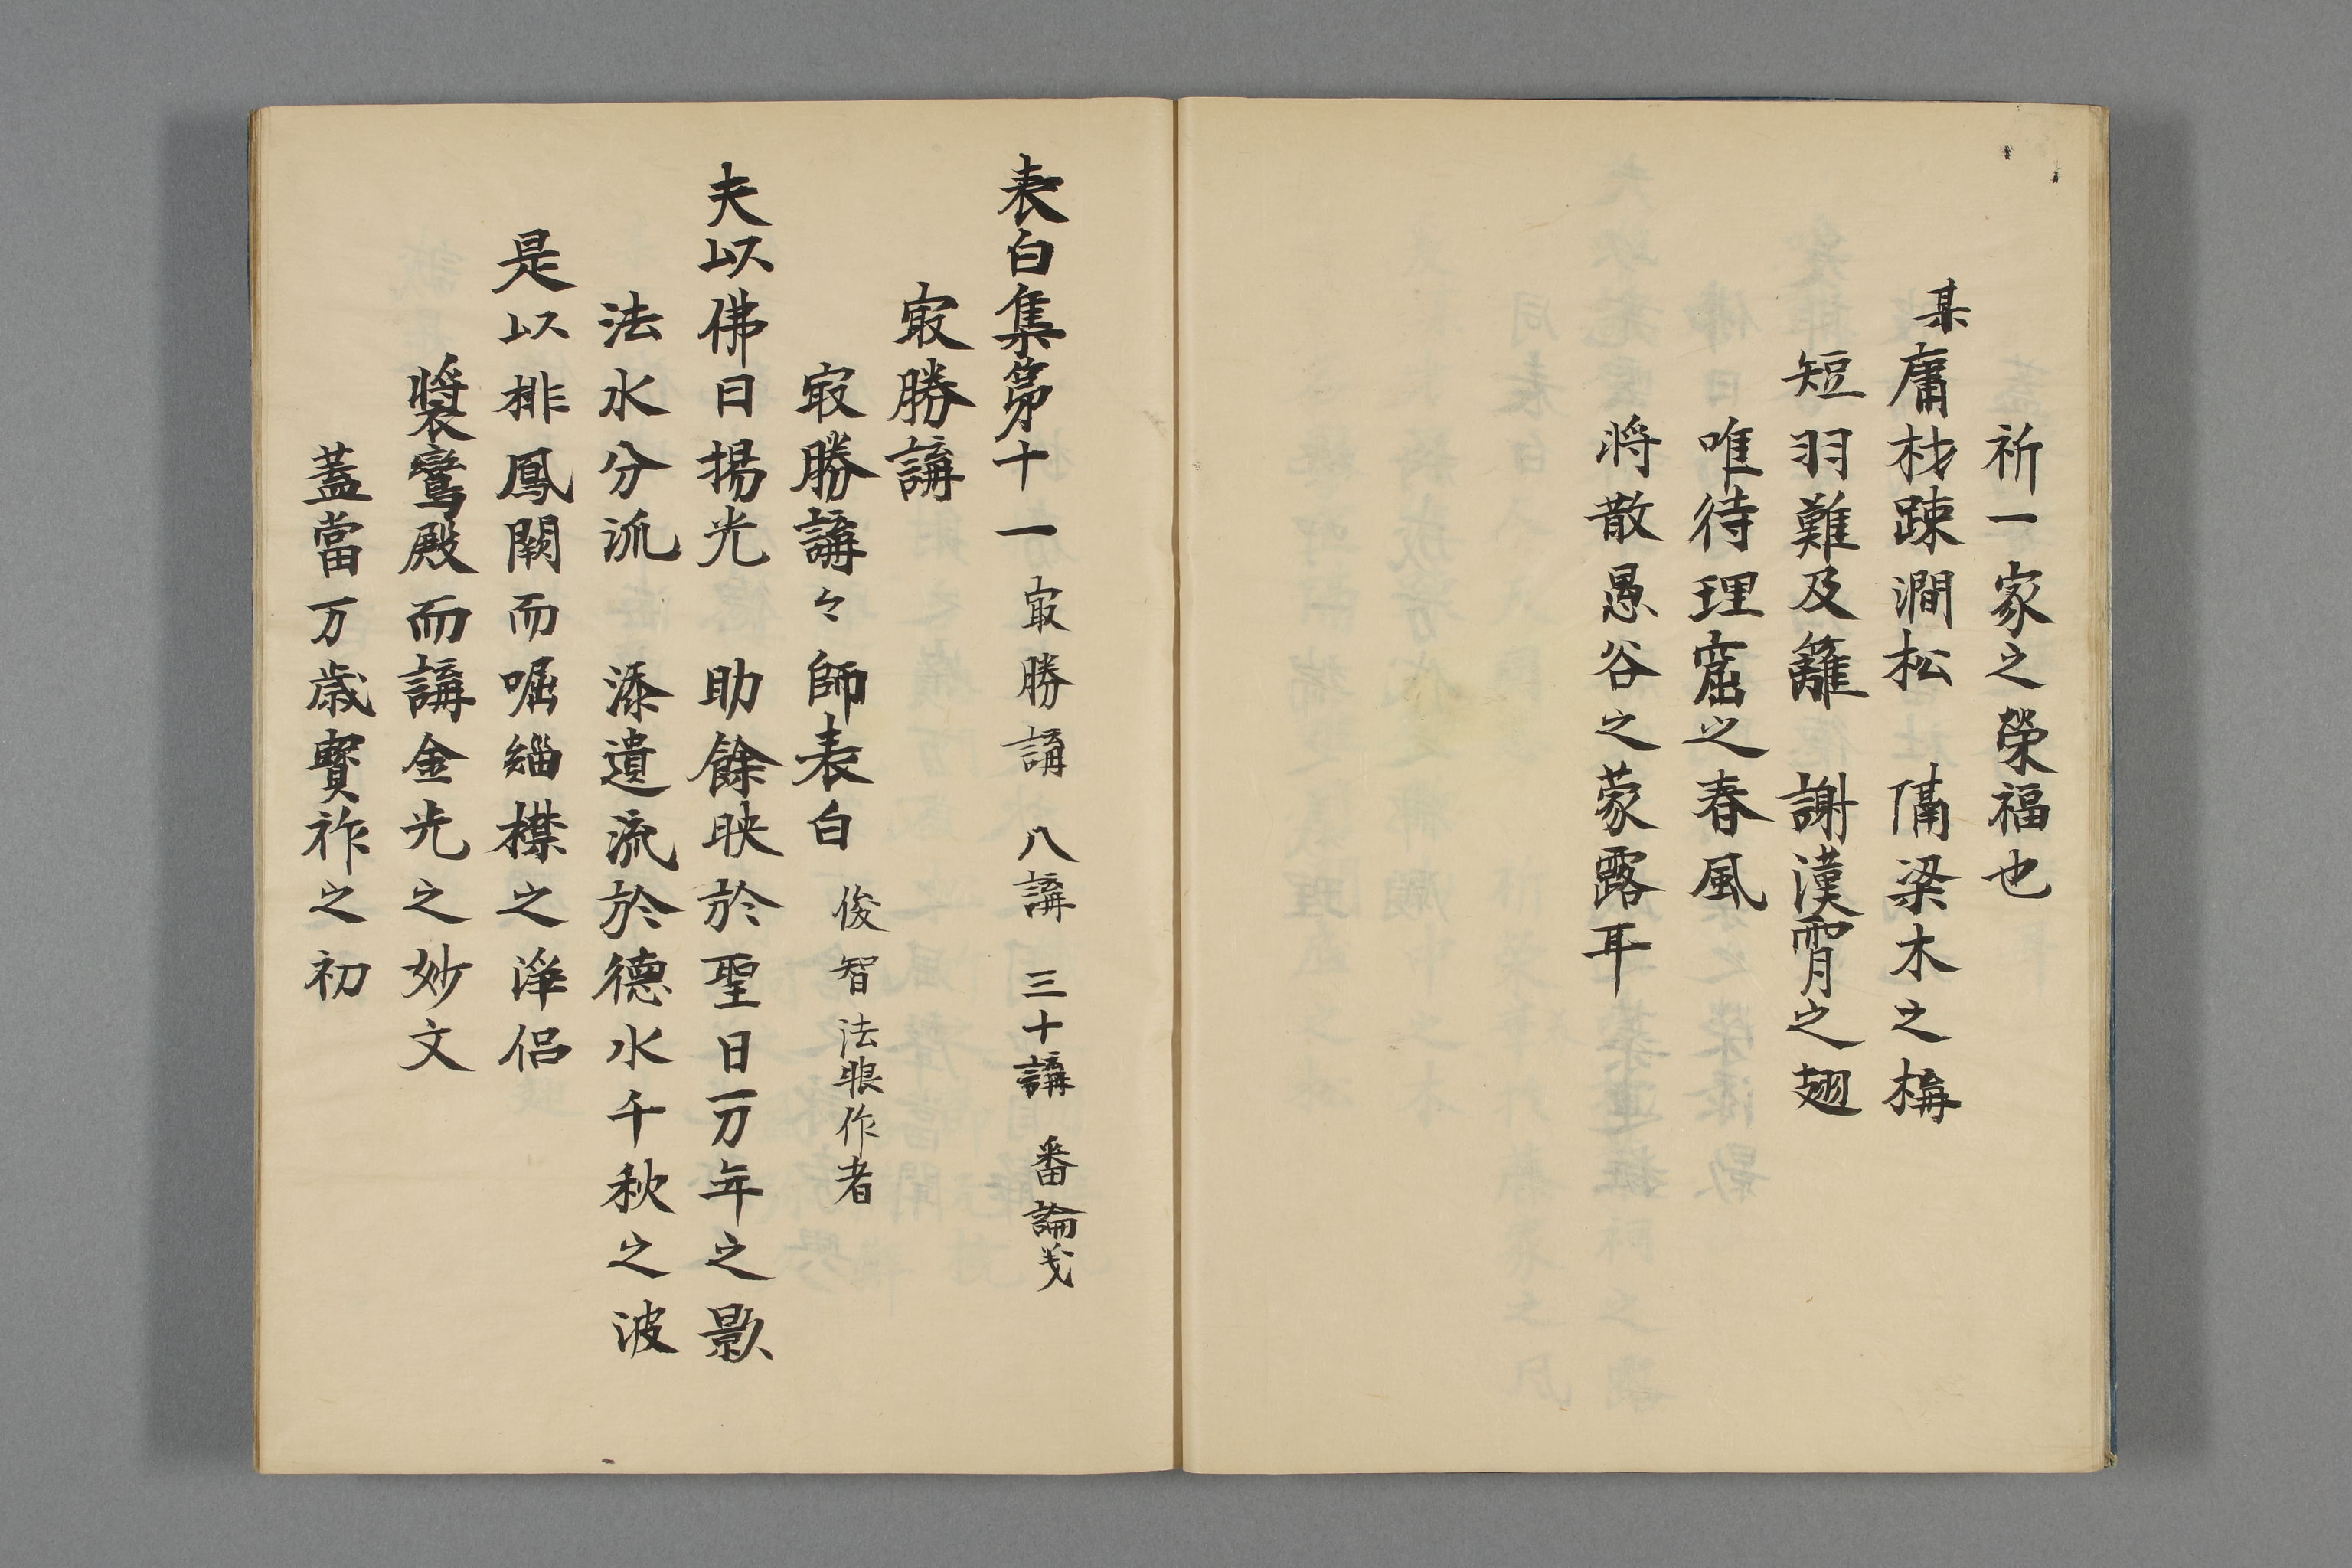 祈一家之榮福也
某庸材踈澗松　隔梁木之構
短羽難及籬　謝漢霄之翅
唯待理窟之春風
將散愚谷之蒙露耳
表白集第十一　冣勝講　八講　三十講　番論義
冣勝講
冣勝講々師表白　俊智法眼作者
夫以佛日揚光　助餘映於聖日万年之影
法水分流　添遺流於德水千秋之波
是以排鳳闕而啒緇襟之淨侶
褰鸞殿而講金光之妙文
蓋當万歳寶祚之初